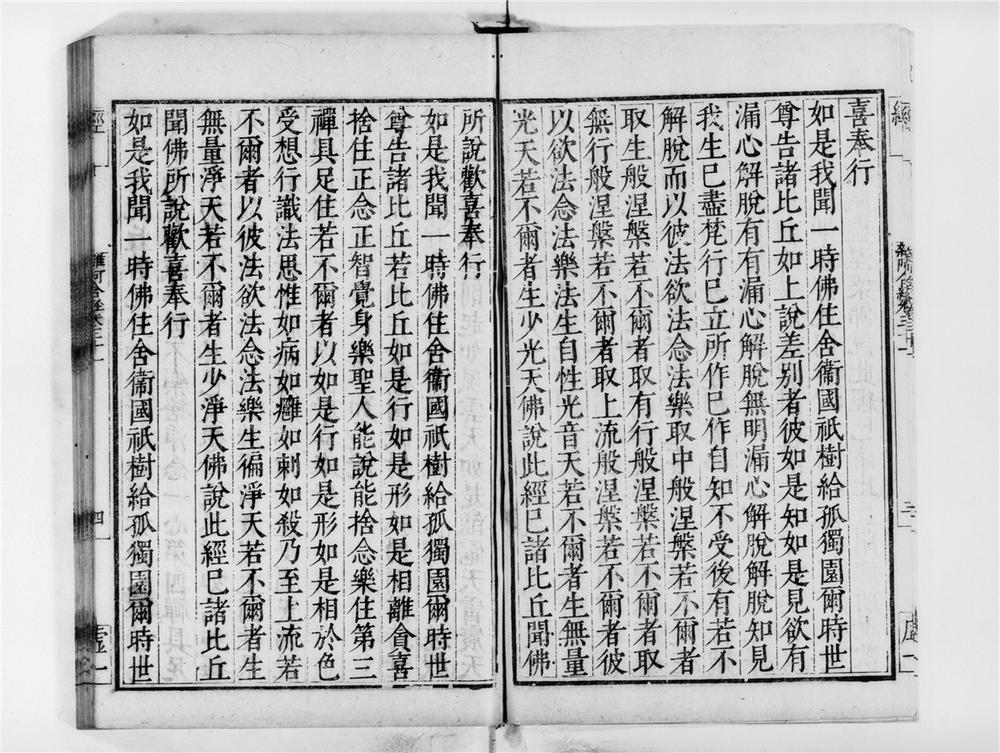 喜奉行
如是我聞一時佛住舍衞國祇樹給孤獨園爾時世
尊告諸比丘如上說差別者彼如是知如是見欲有
漏心解脫有有漏心解脫無明漏心解脫解脫知見
我生已盡梵行已立所作已作自知不受後有若不
解脫而以彼法欲法念法樂取中般涅槃若不爾者
取生般涅槃若不爾者取有行般涅槃若不爾者取
無行般涅槃若不爾者取上流般涅槃若不爾者彼
以欲法念法樂法生自性光音天若不爾者生無量
光天若不爾者生少光天佛說此經已諸比丘聞佛
所說歡喜奉行
如是我聞一時佛住舍衞國祇樹給孤獨園爾時世
尊告諸比丘若比丘如是行如是形如是相離貪喜
捨住正念正智覺身樂聖人能說能捨念樂住第三
禪具足住若不爾者以如是行如是形如是相於色
受想行識法思惟如病如癰如刺如殺乃至上流若
不爾者以彼法欲法念法樂生徧淨天若不爾者生
無量淨天若不爾者生少淨天佛說此經已諸比丘
聞佛所說歡喜奉行
如是我聞一時佛住舍衞國祇樹給孤獨園爾時世
經
四